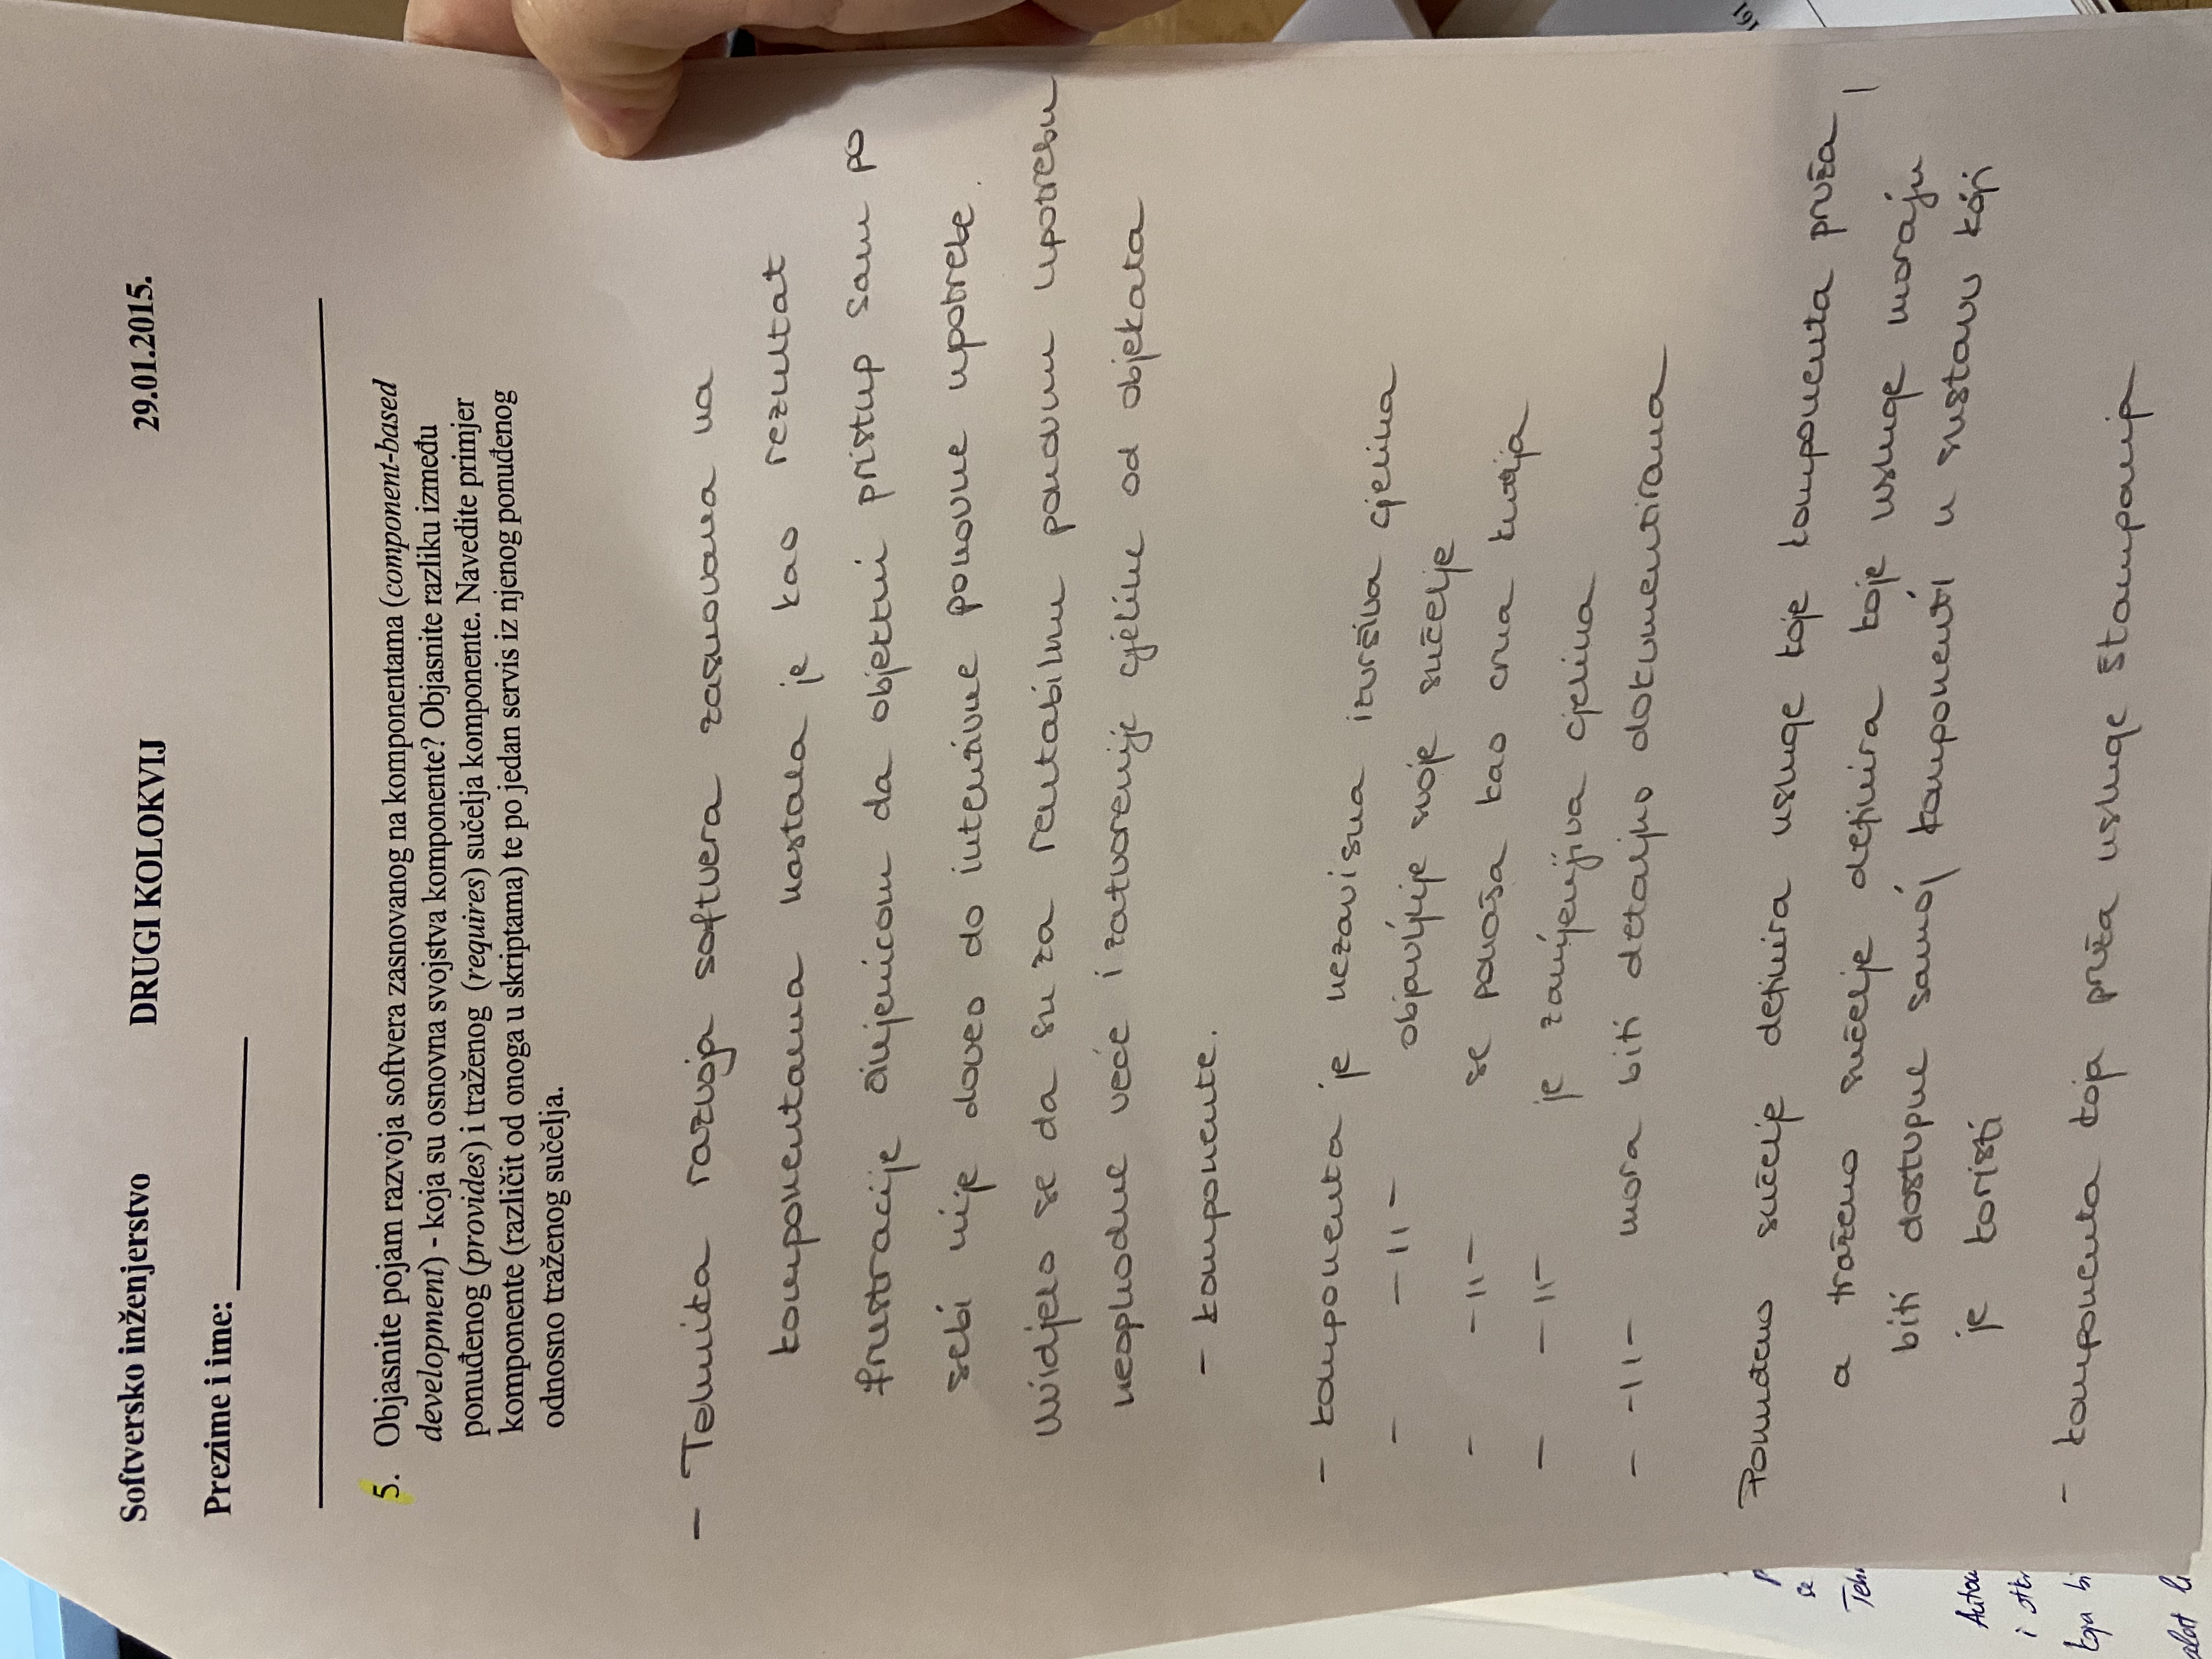 Softversko inženjerstvo DRUGI KOLOKVIJ 29.01.2015.
Prezime i ime:
5. Objasnite pojam razvoja softvera zasnovanog na komponentama (component-based
development) - koja su osnovna svojstva komponente? Objasnite razliku između
ponuđenog (provides) i traženog (requires) sučelja komponente. Navedite primjer
komponente (različit od onoga u skriptama) te po jedan servis iz njenog ponuđenog
odnosno traženog sučelja.
- Tehnika razvoja softvera zasnovana na
komponentama nastala je kao rezultat
frustracije činjenicom da objektni pristup sam po
sebi nije doveo do intenzivne ponovne upotrebe.
Uvidjelo se da su za rentabilnu ponovnu upotrebu
neophodne veće i zatvorenije cjeline od objekata
- komponente.
- komponenta je nezavisna izvršiva cjelina
- -11- objavljuje svoje sučelje
- -11- se ponaša kao crna kutija
- -11- je zamjenjiva cjelina
- -11- mora biti detaljno dokumentirana
Ponuđeno sučelje definira usluge koje komponenta pruža,
a traženo sučelje definira koje usluge moraju
biti dostupne samoj komponenti u sustavu koji
je koristi
- komponenta koja pruža usluge štampanja
161
p
se
Teh
Autom
i otkr
koja bi
alat li